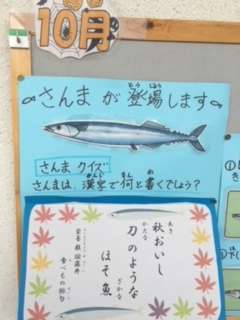 10月
さんまが登場します
さんまクイズ
さんまは、漢字で何と書くでしょう?
秋おいし
刀のような
ほそ魚